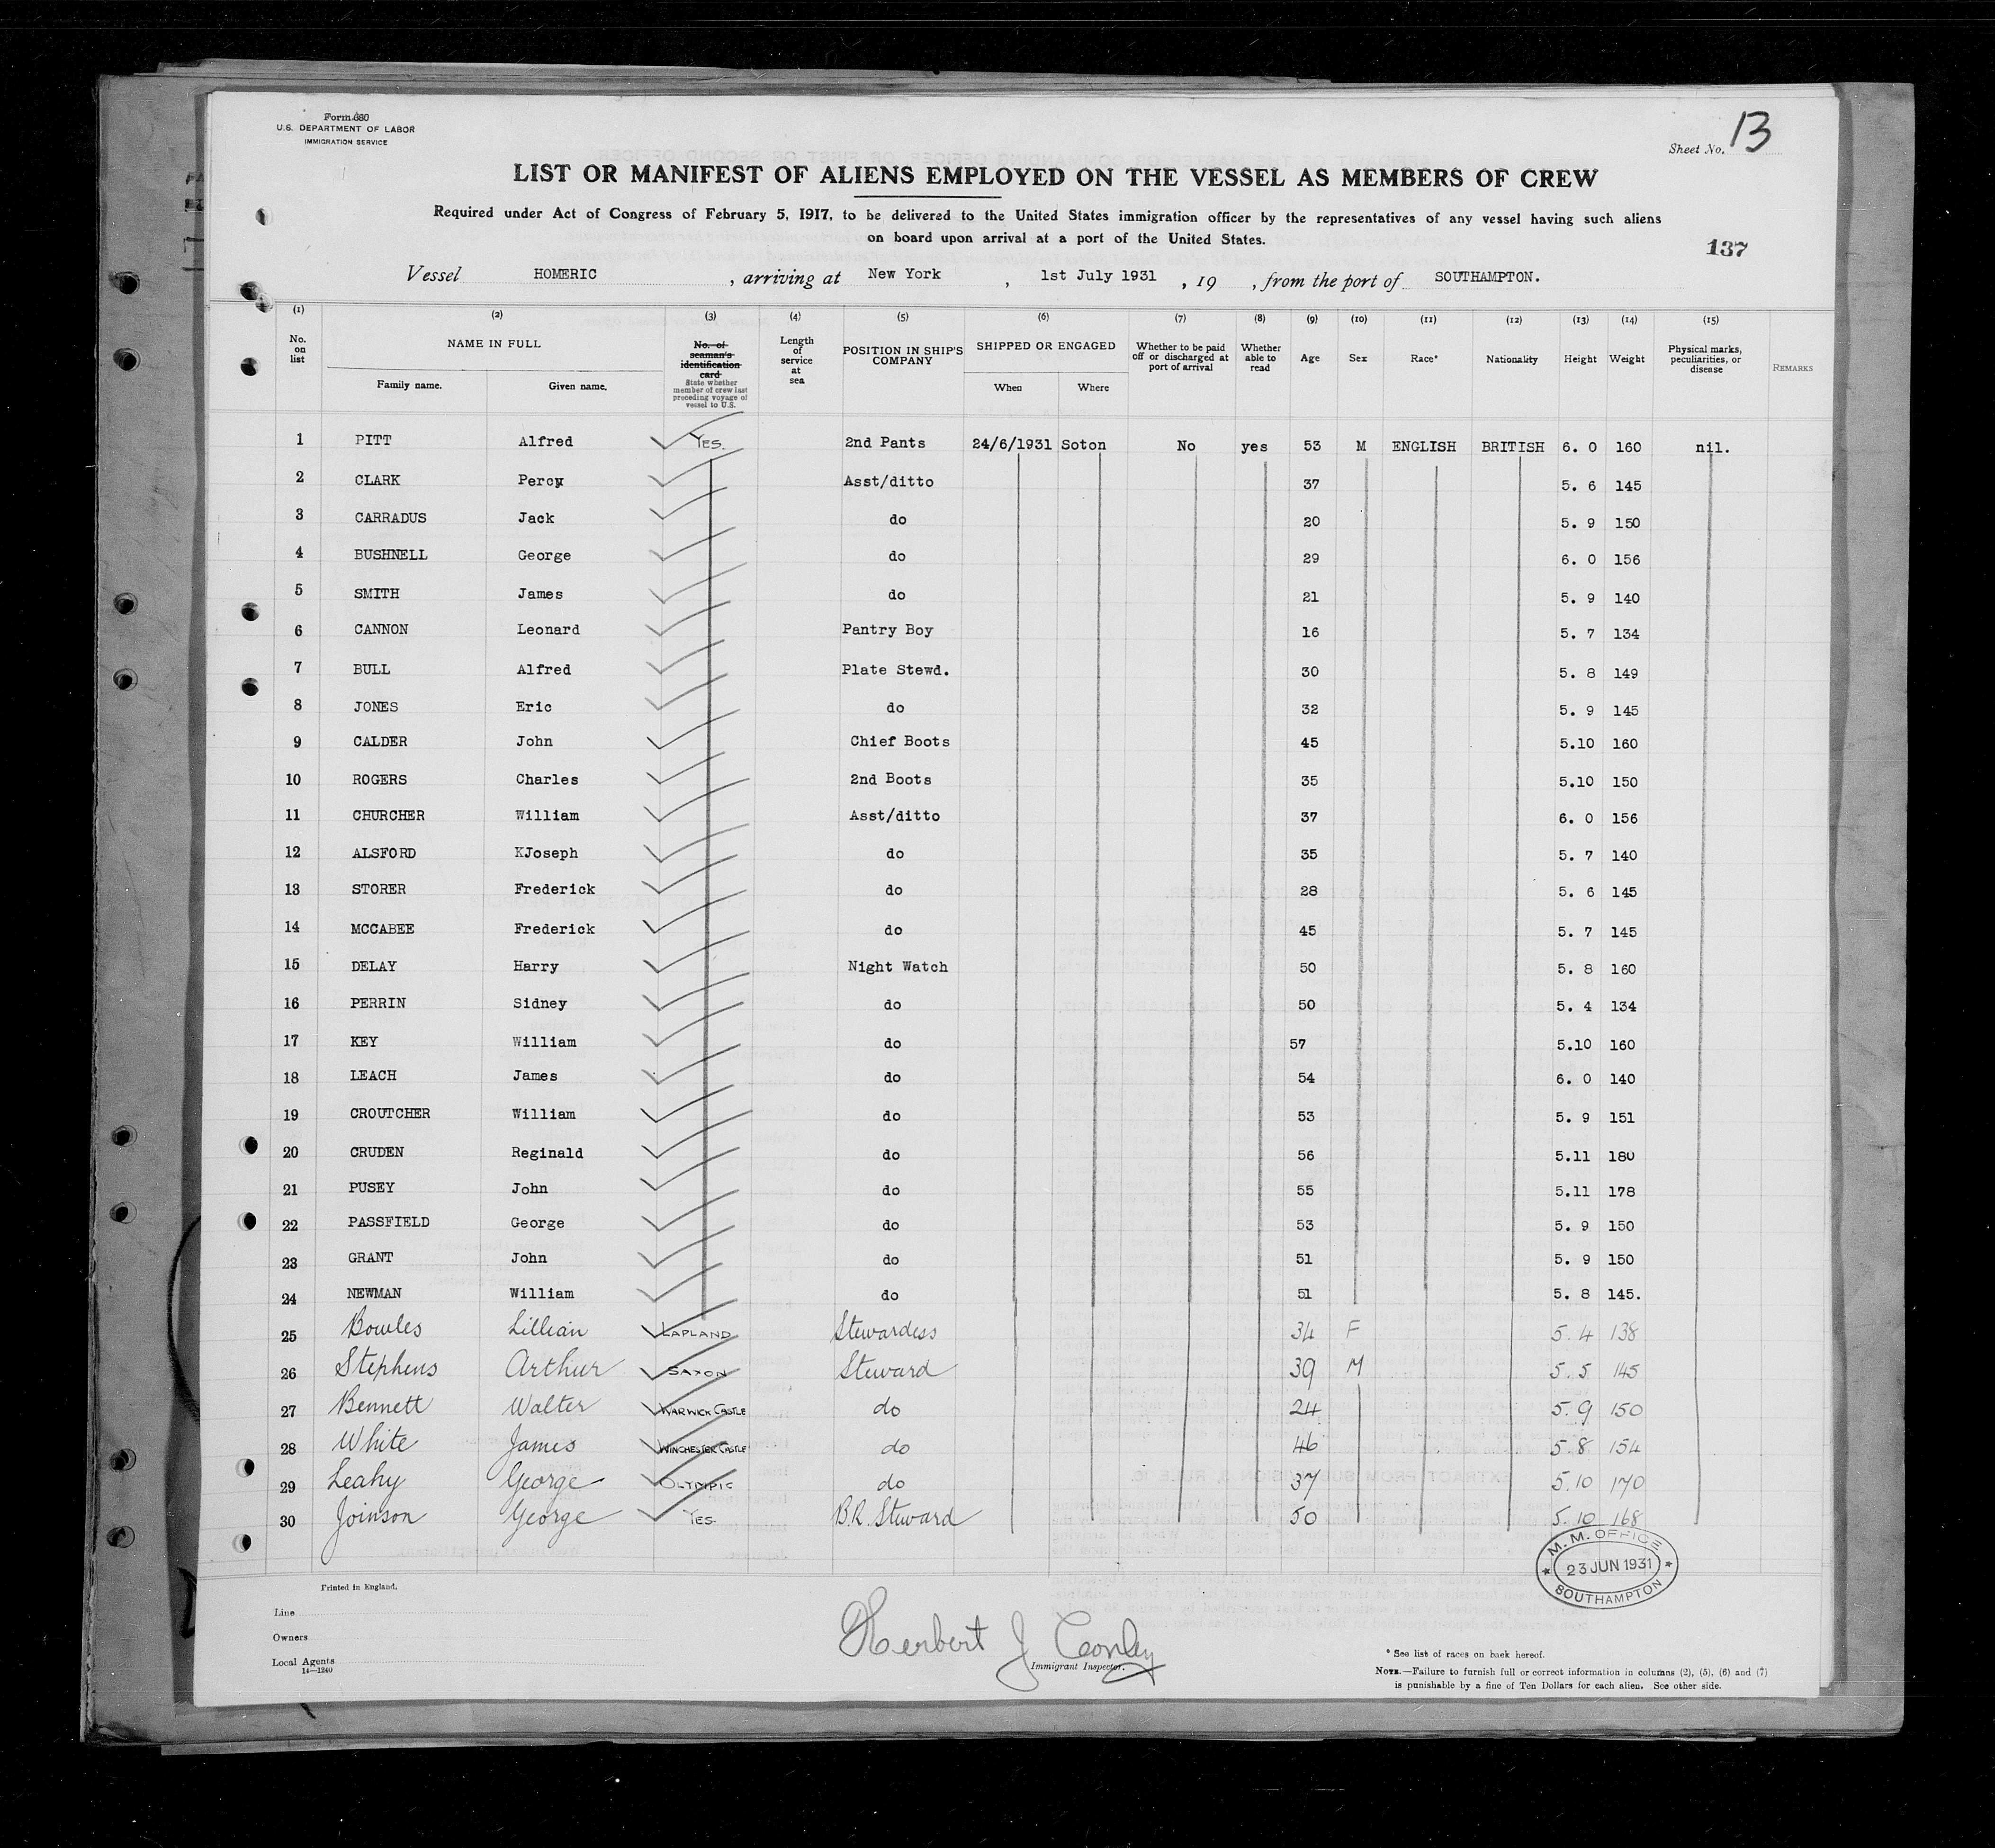 Form 680
U.S. DEPARTMENT OF LABOR
IMMIGRATION SERVICE
Sheet No. 13
LIST OR MANIFEST OF ALIENS EMPLOYED ON THE VESSEL AS MEMBERS OF CREW
Required under Act of Congress of February 5, 1917, to be delivered to the United States immigration officer by the representatives of any vessel having such aliens
on board upon arrival at a port of the United States.
137
Vessel HOMERIC , arriving at New York , 1st July 1931 , 19 , from the port of SOUTHAMPTON.
(1) (2) (3) (4) (5) (6) (7) (8) (9) (10) (11) (12) (13) (14) (15)
No. on list
NAME IN FULL
Family name. Given name.
No. of seaman's identification card
State whether member of crew last preceding voyage of vessel to U.S.
Length of service at sea
POSITION IN SHIP'S COMPANY
SHIPPED OR ENGAGED
When Where
Whether to be paid off or discharged at port of arrival
Whether able to read
Age
Sex
Race*
Nationality
Height
Weight
Physical marks, peculiarities, or disease
REMARKS
1 PITT Alfred YES. 2nd Pants 24/6/1931 Soton No yes 53 M ENGLISH BRITISH 6. 0 160 nil.
2 CLARK Percy Asst/ditto 37 5. 6 145
3 CARRADUS Jack do 20 5. 9 150
4 BUSHNELL George do 29 6. 0 156
5 SMITH James do 21 5. 9 140
6 CANNON Leonard Pantry Boy 16 5. 7 134
7 BULL Alfred Plate Stewd. 30 5. 8 149
8 JONES Eric do 32 5. 9 145
9 CALDER John Chief Boots 45 5.10 160
10 ROGERS Charles 2nd Boots 35 5.10 150
11 CHURCHER William Asst/ditto 37 6. 0 156
12 ALSFORD KJoseph do 35 5. 7 140
13 STORER Frederick do 28 5. 6 145
14 MCCABEE Frederick do 45 5. 7 145
15 DELAY Harry Night Watch 50 5. 8 160
16 PERRIN Sidney do 50 5. 4 134
17 KEY William do 57 5.10 160
18 LEACH James do 54 6. 0 140
19 CROUTCHER William do 53 5. 9 151
20 CRUDEN Reginald do 56 5.11 180
21 PUSEY John do 55 5.11 178
22 PASSFIELD George do 53 5. 9 150
23 GRANT John do 51 5. 9 150
24 NEWMAN William do 51 5. 8 145.
25 Bowles Lillian LAPLAND Stewardess 34 F 5. 4 138
26 Stephens Arthur SAXON Steward 39 M 5. 5 145
27 Bennett Walter WARWICK CASTLE do 24 5. 9 150
28 White James WINCHESTER CASTLE do 46 5. 8 154
29 Leahy George OLYMPIC do 37 5. 10 170
30 Joinson George YES. B.R. Steward 50 5. 10 168
M. M. OFFICE
23 JUN 1931
SOUTHAMPTON
Printed in England.
Line
Owners
Local Agents
14—1240
Herbert J
Immigrant Inspector.
* See list of races on back hereof.
NOTE.—Failure to furnish full or correct information in columns (2), (5), (6) and (7)
is punishable by a fine of Ten Dollars for each alien. See other side.